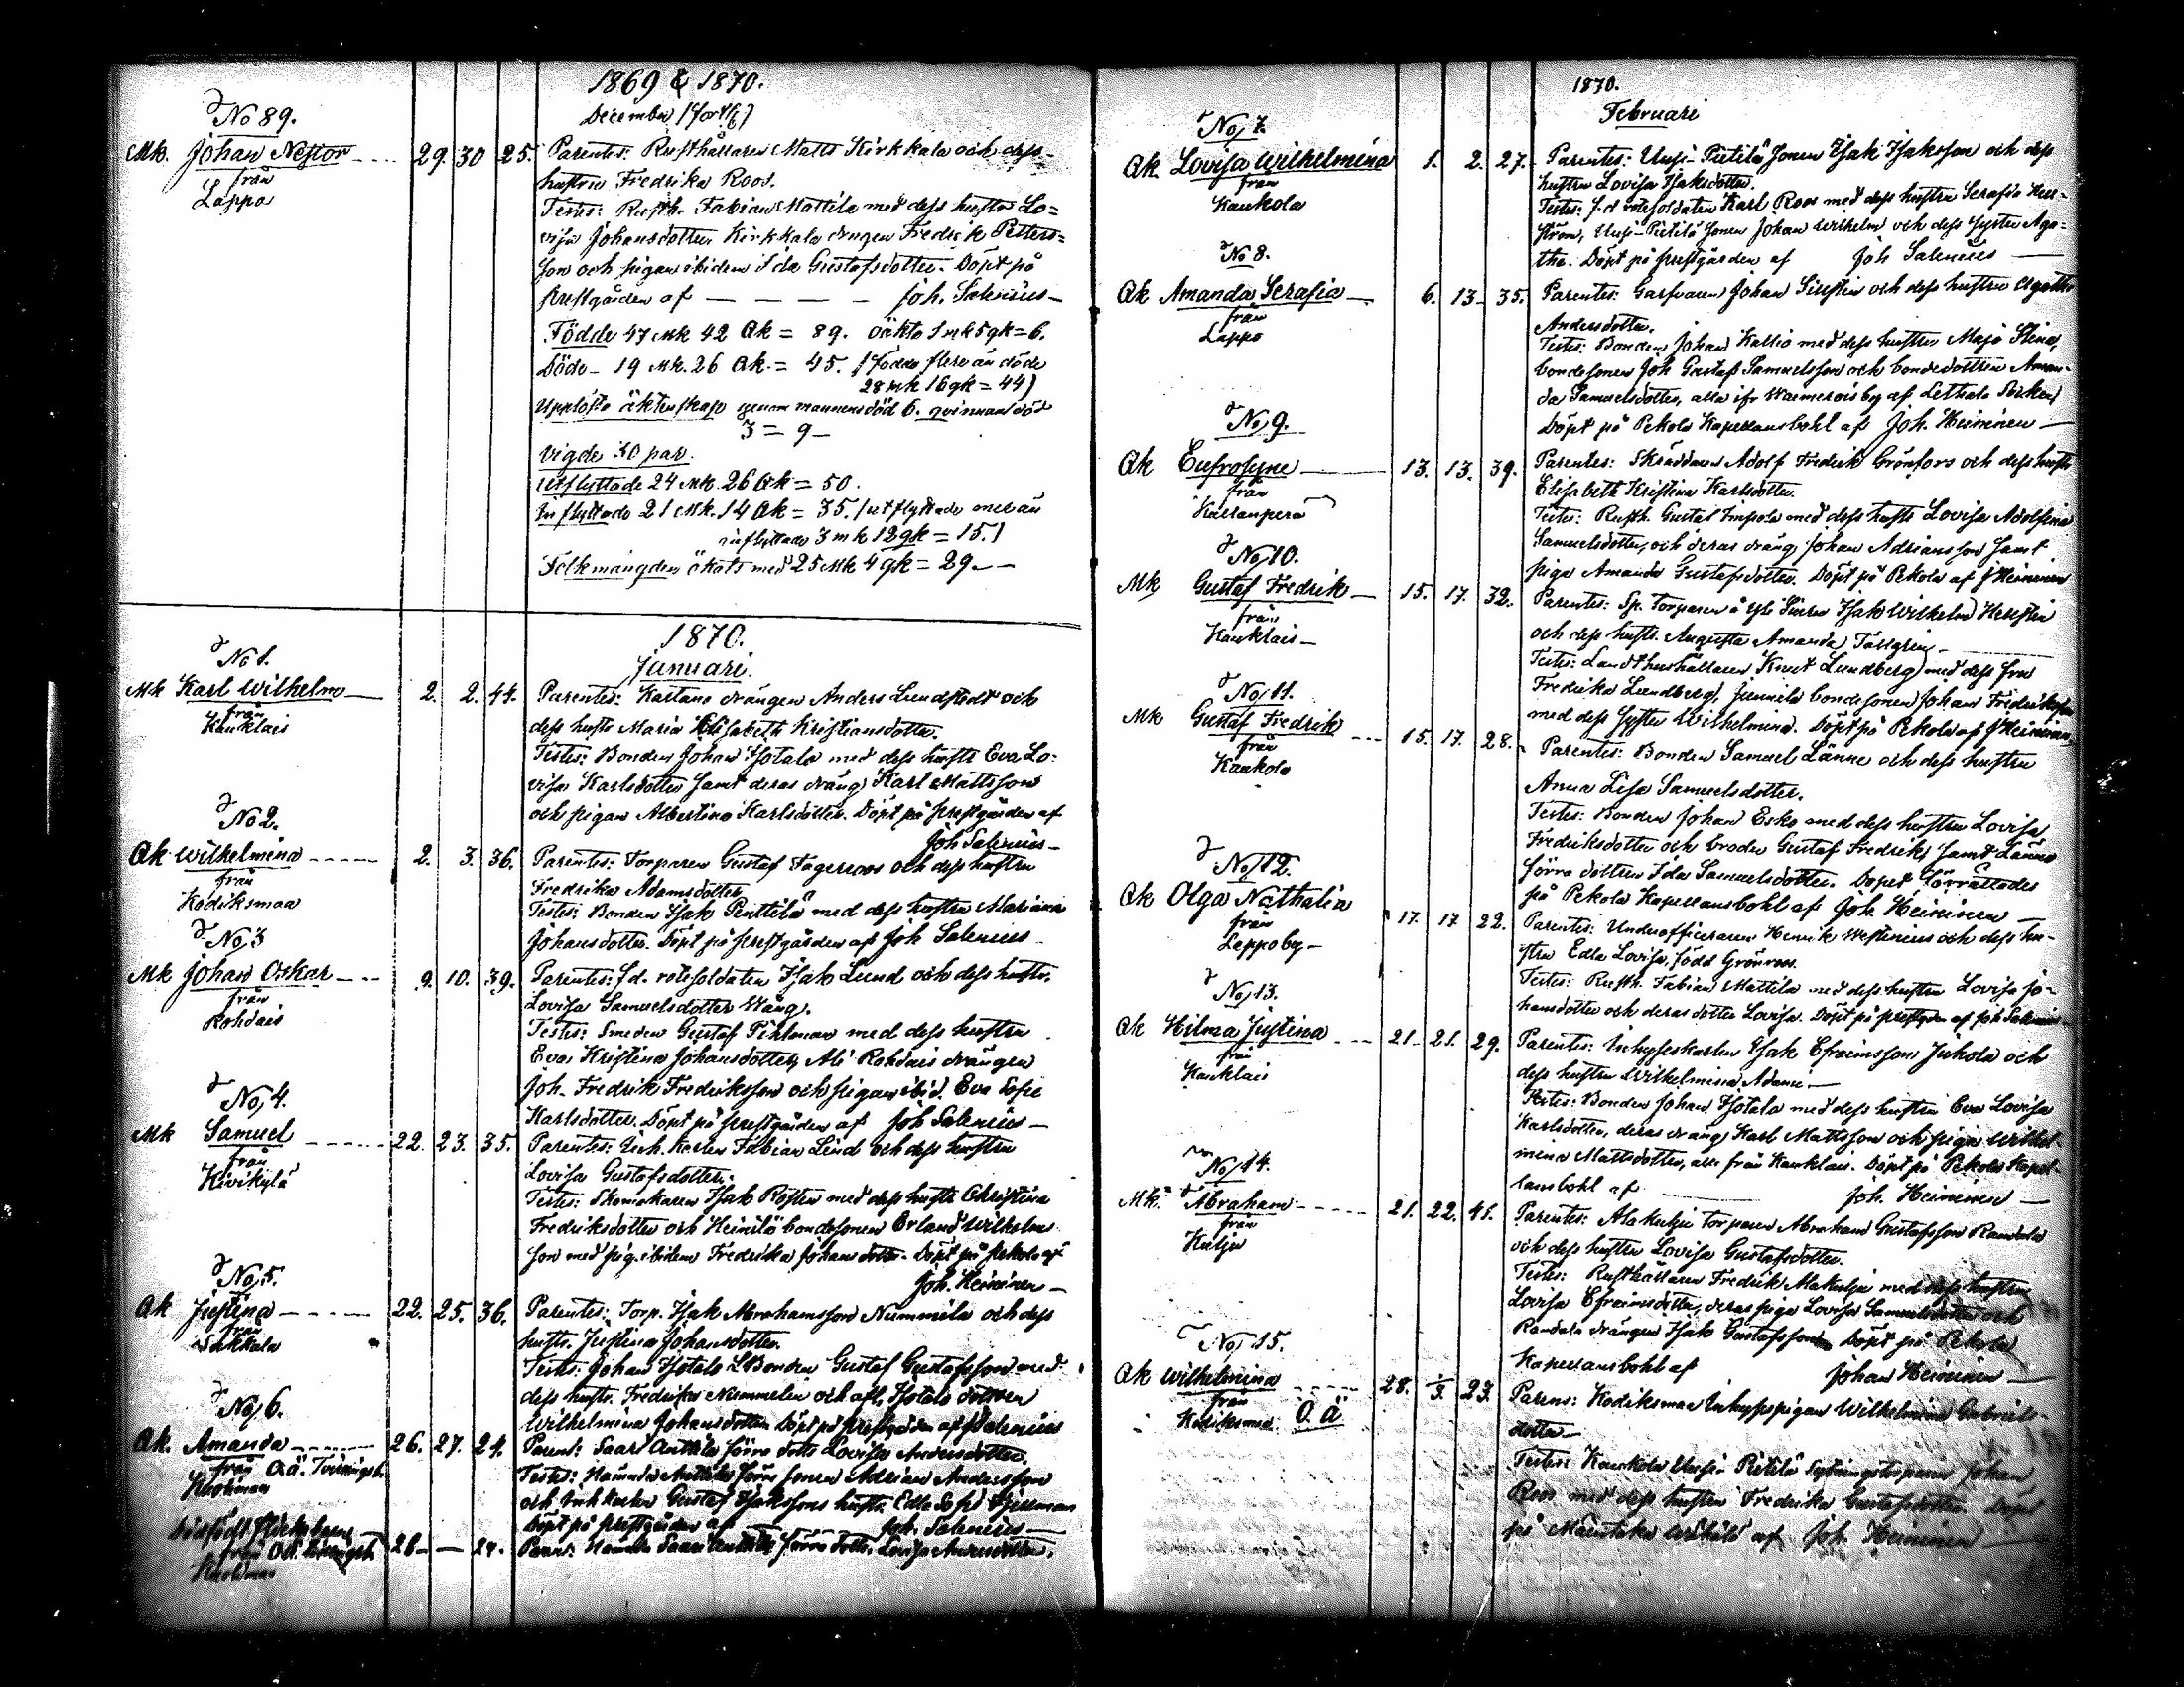 1869 & 1870.
December (forts)
No 89.
Mk. Johan Nestor 29. 30 25.
från
Lappo
Parentes: Rusthållaren Matts Kirkkala och dess
hustru Fredrika Roos.
Testes: Rusth. Fabian Mattila med dess hustru Lo=
visa Johansdotter, Kirkkala drängen Fredrik Petters=
son och pigan ibidem Ida Gustafsdotter. Döpt på
prestgården af Joh. Salenius
Födde 47 Mk 42 Qk = 89. oäkta 1 mk 5 qk = 6.
Döde 19 Mk. 26 Qk. = 45. (Födde flere än döde
28 mk 16 qk = 44)
Upplöste äktenskap genom mannens död 6. qvinnans död
3 = 9
vigde 30 par.
utflyttade 24 Mk. 26 Qk = 50.
Inflyttade 21 Mk. 14 Qk = 35. (utflyttade mer än
inflyttade 3 mk 12 qk = 15.)
Folkmängden ökats med 25 Mk 4 qk = 29.
1870.
Januari.
No 1.
Mk Karl Wilhelm 2. 2. 44.
från
Kauklais
Parentes: Kaitano drängen Anders Lundstedt och
dess hustr. Maria Elisabeth Kristiansdotter.
Testes: Bonden Johan Isotalo med dess hustr. Eva Lo=
visa Karlsdotter samt deras dräng Karl Mattsson
och pigan Albertina Karlsdotter. Döpt på prestgården af
Joh Salenius
No 2.
Qk Wilhelmina 2. 3. 36.
från
Kodiksmaa
Parentes: Torparen Gustaf Fagerroos och dess hustru
Fredrika Adamsdotter
Testes: Bonden Isak Penttilä med dess hustru Mariana
Johansdotter. Döpt på prestgården af Joh Salenius
No 3
Mk Johan Oskar 9. 10. 39.
från
Rohdais
Parentes: f.d. rotesoldaten Isak Lund och dess hustr.
Lovisa Samuelsdotter Wång.
Testes: Smeden Gustaf Pihlman med dess hustru
Eva Kristina Johansdotter, Ali Rohdais drängen
Joh. Fredrik Fredriksson och pigan ibid. Eva Sofia
Karlsdotter. Döpt på prestgården af Joh Salenius
No 4.
Mk Samuel 22. 23. 35.
från
Kivikylä
Parentes: Inh. Karlen Fabian Lind och dess hustru
Lovisa Gustafsdotter.
Testes: Skomakaren Isak Rosten med dess hustr. Christina
Fredriksdotter och Heinilä bondesonen Erland Wilhelms
son med pig. ibidem Fredrika Johansdotter. Döpt på Pekola af
Joh. Heininen
No 5.
Qk Justina 22. 25. 36.
från
Sukkala
Parentes: Torp. Isak Abrahamsson Nummila och dess
hustr. Justina Johansdotter.
Testes: Johan Isotalo Bonden Gustaf Gustafsson med
dess hustr. Fredrika Nummelin och Isotalo dottern
Wilhelmina Johansdotter Döpt på prestgården af J Salenius
No 6.
Qk. Amanda 26. 27. 24.
från Oä. Tvillingsb.
Parens: Saari Anttila förre dottr. Lovisa Andersdotter.
Testes: Anttila förre sonen Adrian Andersson
och Inh Karlen Gustaf Isakssons hustr. Edla Sofia Hjelman
Döpt på prestgården af Joh. Salenius
Dödfödt flickebarn 28 — 24.
från Oä. Tvillingsb.
Parens: Saari Anttila förre dottr. Lovisa Andersdotter.
1870.
Februari
No 7.
Qk. Lovisa Wilhelmina 1. 2. 27.
från
Kaukola
Parentes: Uusi-Pietilä sonen Isak Isaksson och dess
hustru Lovisa Isaksdotter.
Testes: f.d rotesoldaten Karl Roos med dess hustru Serafia
ström, Uusi-Pietilä sonen Johan Wilhelm och dess syster Aga=
tha. Döpt på prestgården af Joh Salenius
No 8.
Qk Amanda Serafia 6. 13. 35.
från
Lappo
Parentes: Garfvaren Johan Sirstin och dess hustru Agatha
Andersdotter.
Testes: Bonden Johan Kallio med dess hustru Maja Stina,
bondesonen Joh Gustaf Samuelsson och bondedottren Aman-
da Samuelsdotter, alla ifr. by af Letala Socken
Döpt på Pekola Kapellansbohl af Joh. Heininen
No 9.
Qk Eufrosyne 13. 13. 39.
från
Kallanperä
Parentes: Skräddaren Adolf Fredrik Grönfors och dess hustr
Elisabeth Kristina Karlsdotter.
Testes: Rusth. Gustaf Impola med dess hustr Lovisa Adolfina
Samuelsdotter, och deras dräng Johan Adriansson samt
piga Amanda Gustafsdotter. Döpt på Pekola af J Heininen
No 10.
Mk Gustaf Fredrik 15. 17. 32.
från
Kauklais
Parentes: Sp. Torparen å Isak Wilhelm
och dess hustr. Augusta Amanda Tallgrén
Testes: Landthushållaren Knut Lundberg med dess fru
Fredrika Lundberg, Junnila bondesonen Johan Fredriksson
med dess syster Wilhelmina. Döpt på Pekola af J Heininen
No 11.
Mk Gustaf Fredrik 15. 17. 28.
från
Kaukola
Parentes: Bonden Samuel Länne och dess hustru
Anna Lisa Samuelsdotter.
Testes: Bonden Johan Esko med dess hustru Lovisa
Fredriksdotter och broder Gustaf Fredrik, samt Länne
förre dottren Ida Samuelsdotter. Dopet förrättades
på Pekola Kapellansbohl af Joh. Heininen
No 12.
Qk Olga Nathalia 17. 17 22.
från
Lappoby
Parentes: Underofficeraren Henrik Westenius och dess hu-
stru Edla Lovisa, född Grönroos.
Testes: Rusth. Fabian Mattila med dess hustru Lovisa Jo-
hansdotter och deras dotter Lovisa. Döpt på prestgården af Joh Salenius
No 13.
Qk Hilma Justina 21. 21. 29.
från
Kauklais
Parentes: Inhyseskarlen Isak Efraimsson Juhola och
dess hustru Wilhelmina
Testes: Bonden Johan Isotalo med dess hustru Eva Lovisa
Karlsdotter, deras dräng Karl Mattsson och piga Wilhel-
mina Mattsdotter, alla från Kauklais. Döpt på Pekola Kapel-
lansbohl af Joh. Heininen
No 14.
Mk. Abraham 21. 22. 41.
från
Kulju
Parentes: Alakulju torparen Abraham Gustafsson Randala
och dess hustru Lovisa Gustafsdotter.
Testes: Rusthållaren Fredrik Alakulju med dess hustru
Lovisa Efraimsdotter, deras piga Lovisa Samuelsdotter och
Randala drängen Isak Gustafsson. Döpt på Pekola
Kapellansbohl af Johan Heininen
No 15.
Qk Wilhelmina 28. 1/3. 23.
från
Kodiksmaa O.ä
Parens: Kodiksmaa Inhysespigan Wilhelmina Gabriels-
dotter
Testes: Kaukola Uusi-Pietilä Sytningstorparen Johan
Roos med dess hustru Fredrika Gustafsdotter. Döpt
på af Joh. Heininen